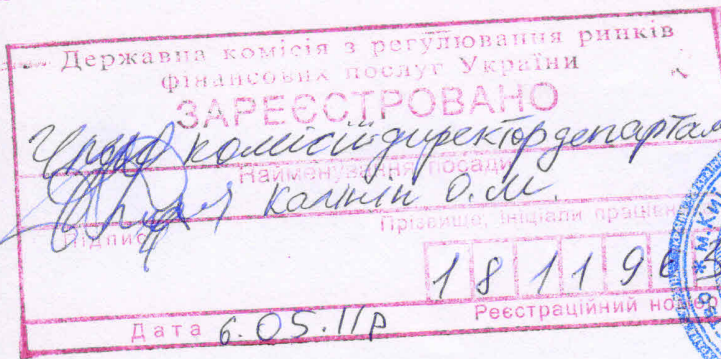 Державна комісія з регулювання ринків
фінансових послуг України
ЗАРЕЄСТРОВАНО
Член комісії директор департам
Найменування посади
О.М.
Підпис
Прізвище, ініціали праців
1 8 1 1 9 6
Реєстраційний номер
Дата 6.05.11р